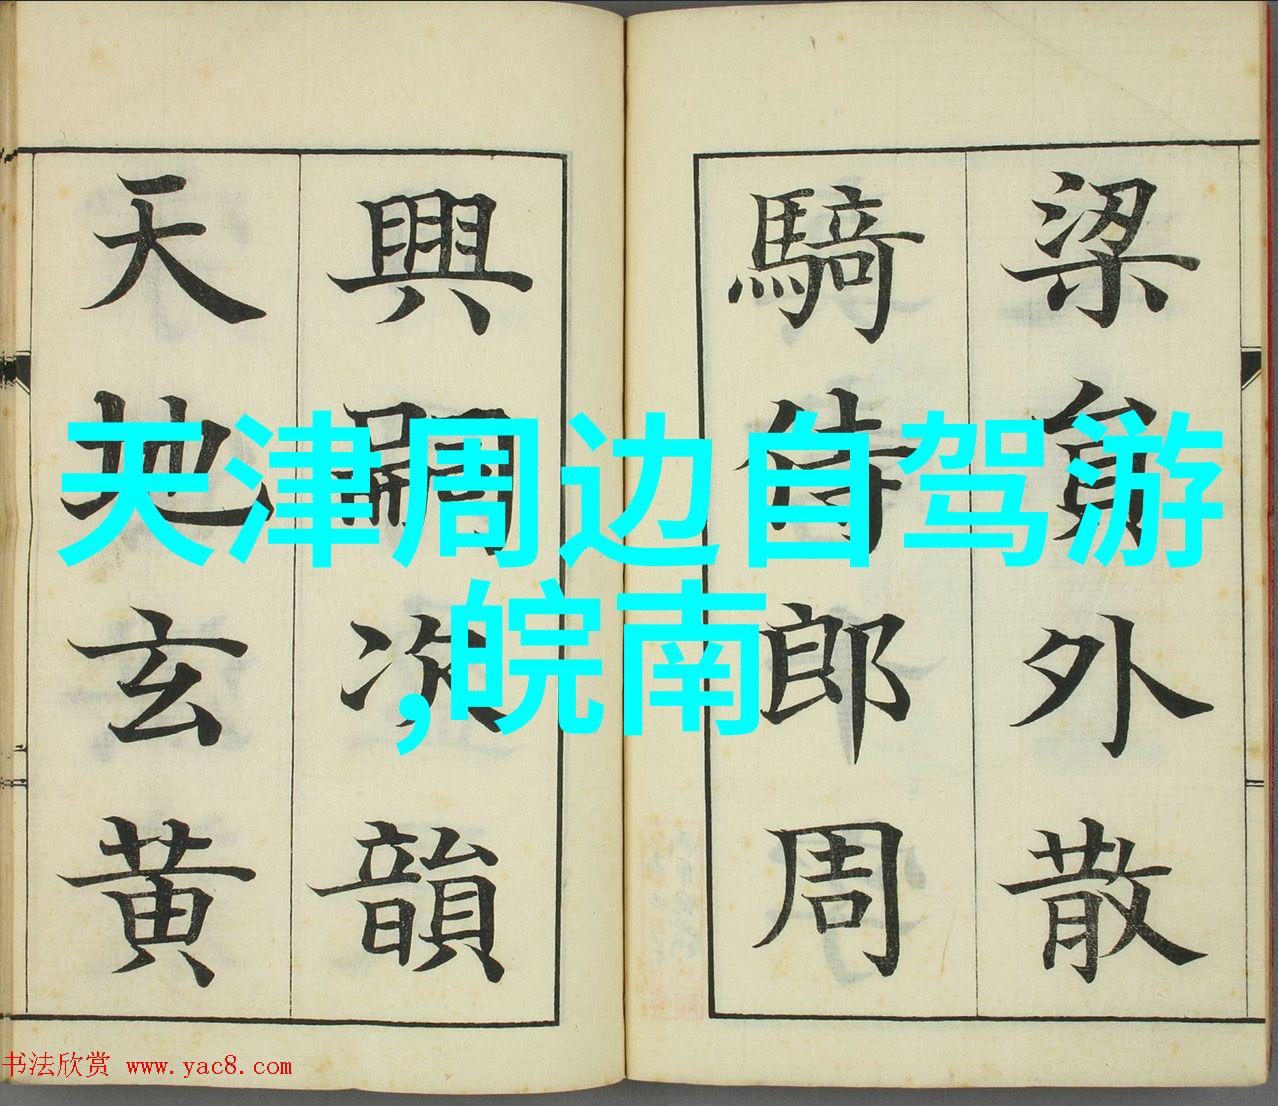 梁員外散
騎侍郎周
興嗣次韻
天地玄黃
天津周边自驾游
,皖南
书法欣赏 www.yac8.com